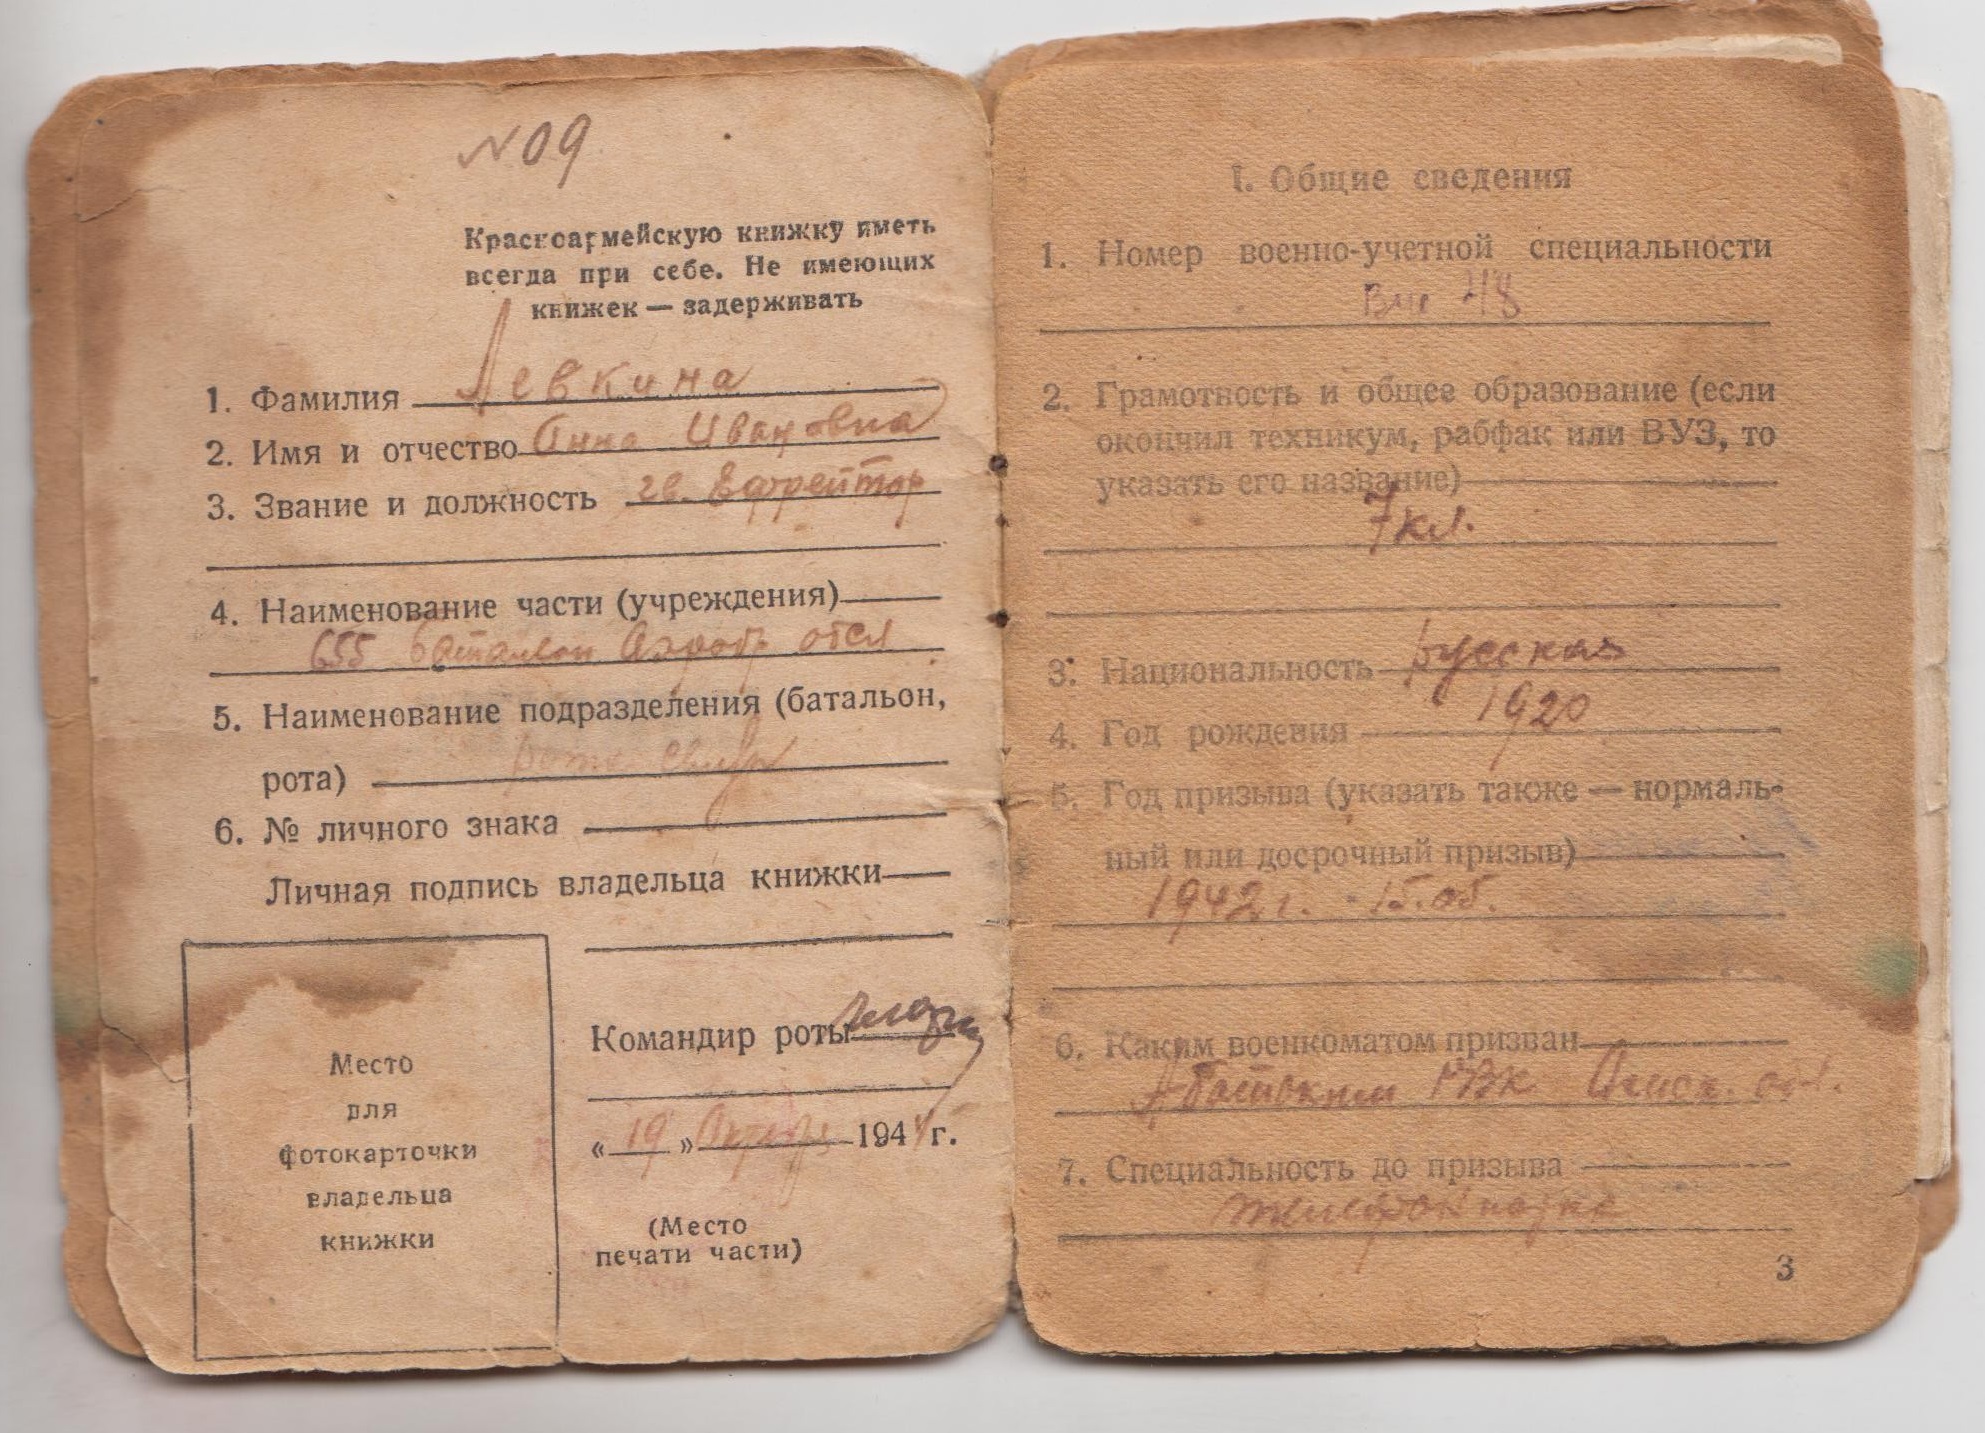 № 09
Красноармейскую книжку иметь
всегда при себе. Не имеющих
книжек — задерживать
1. Фамилия Левкина
2. Имя и отчество Анна Ивановна
3. Звание и должность гв. Ефрейтор
4. Наименование части (учреждения)
655 батальон Аэродр обсл
5. Наименование подразделения (батальон,
рота) рота связи
6. № личного знака
Личная подпись владельца книжки
Место
для
фотокарточки
владельца
книжки
Командир роты
« 19 » Октября 1944 г.
(Место
печати части)
I. Общие сведения
1. Номер военно-учетной специальности
48
2. Грамотность и общее образование (если
окончил техникум, рабфак или ВУЗ, то
указать его название)
7 кл.
3. Национальность русская
4. Год рождения 1920
5. Год призыва (указать также — нормаль-
ный или досрочный призыв)
1942 г. 15.05.
6. Каким военкоматом призван
Абатским РВК Омск. обл.
7. Специальность до призыва
3